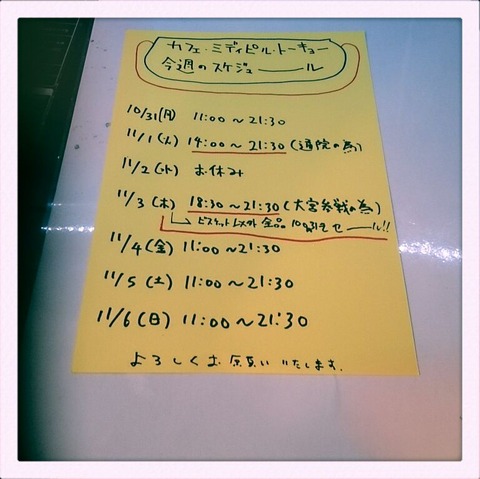 カフェ・ミディピル・トーキョー
今週のスケジュール
10/31(月) 11:00～21:30
11/1(火) 14:00～21:30(通院の為)
11/2(水) お休み
11/3(木) 18:30～21:30(大宮参戦の為)
ビスケット以外全品100引きセール!!
11/4(金) 11:00～21:30
11/5(土) 11:00～21:30
11/6(日) 11:00～21:30
よろしくお願いいたします.